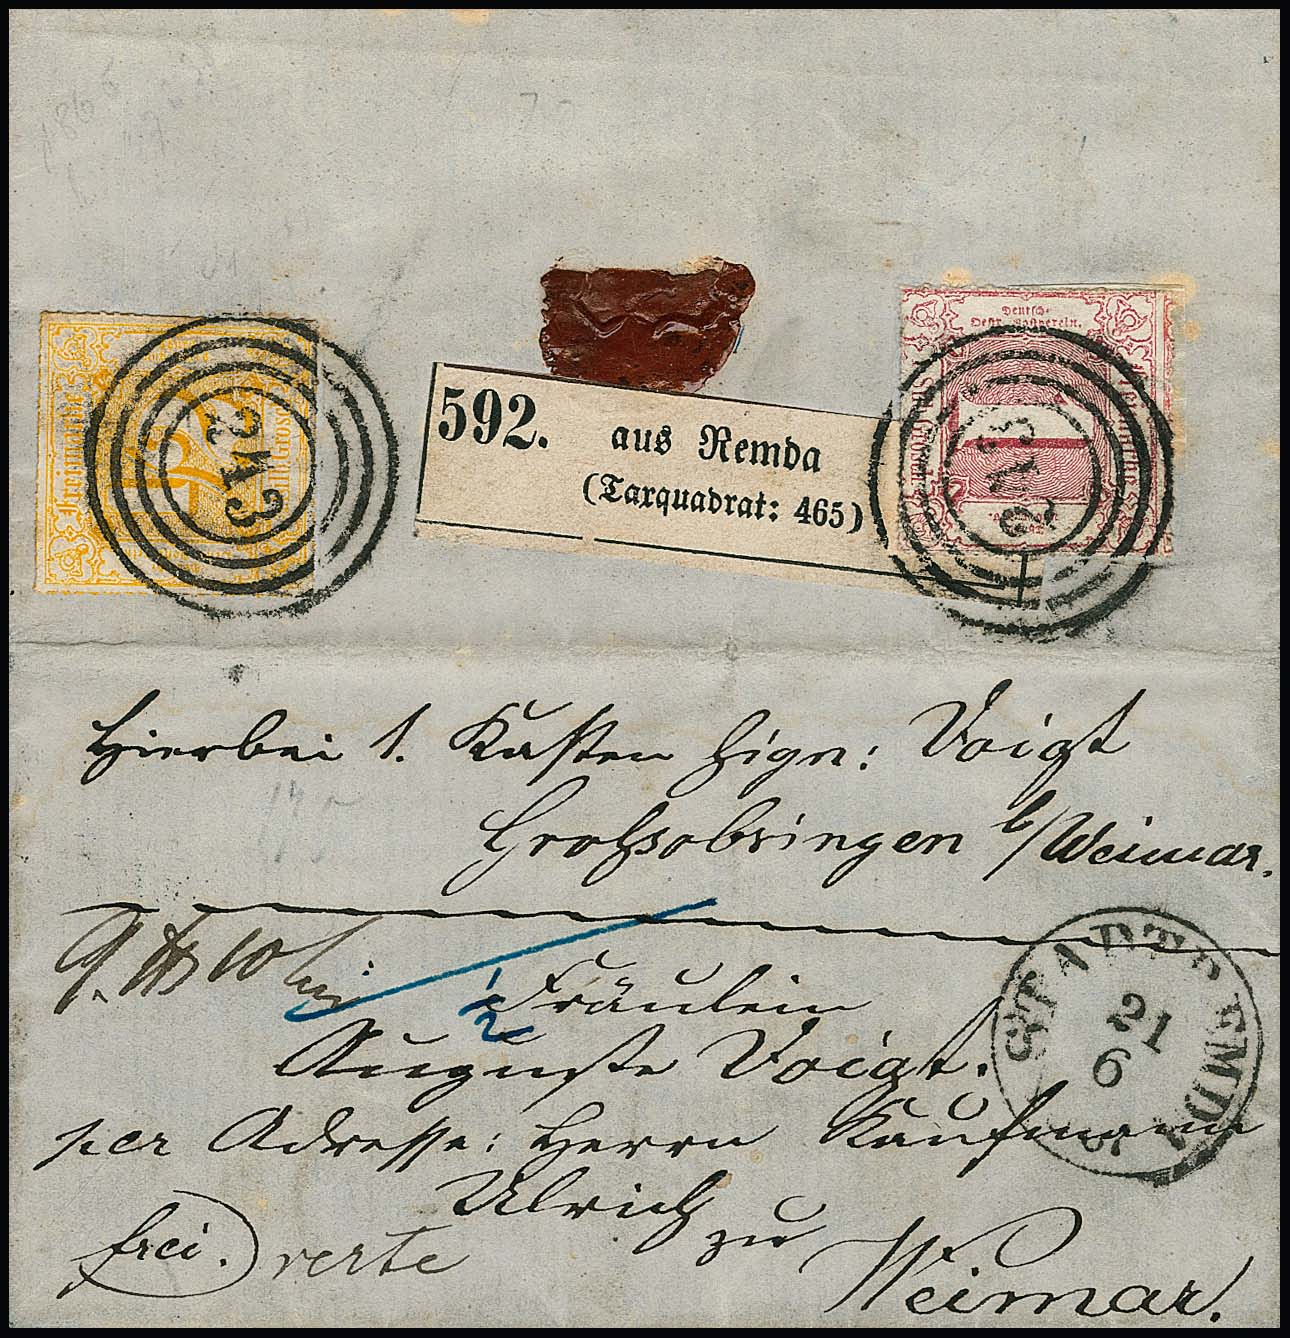 Freimarke
243
592.
aus Remda
(Taxquadrat: 465)
Deutsch-
Oestr. Postverein.
1
243
Hierbei 1. Kasten sign: Voigt
Großobringen b/Weimar.
1/2
Fräulein
Auguste Voigt.
STADTREMDA
21
6
per Adresse: Herrn Kaufmann
Ulrich
zu
frei.
Weimar.